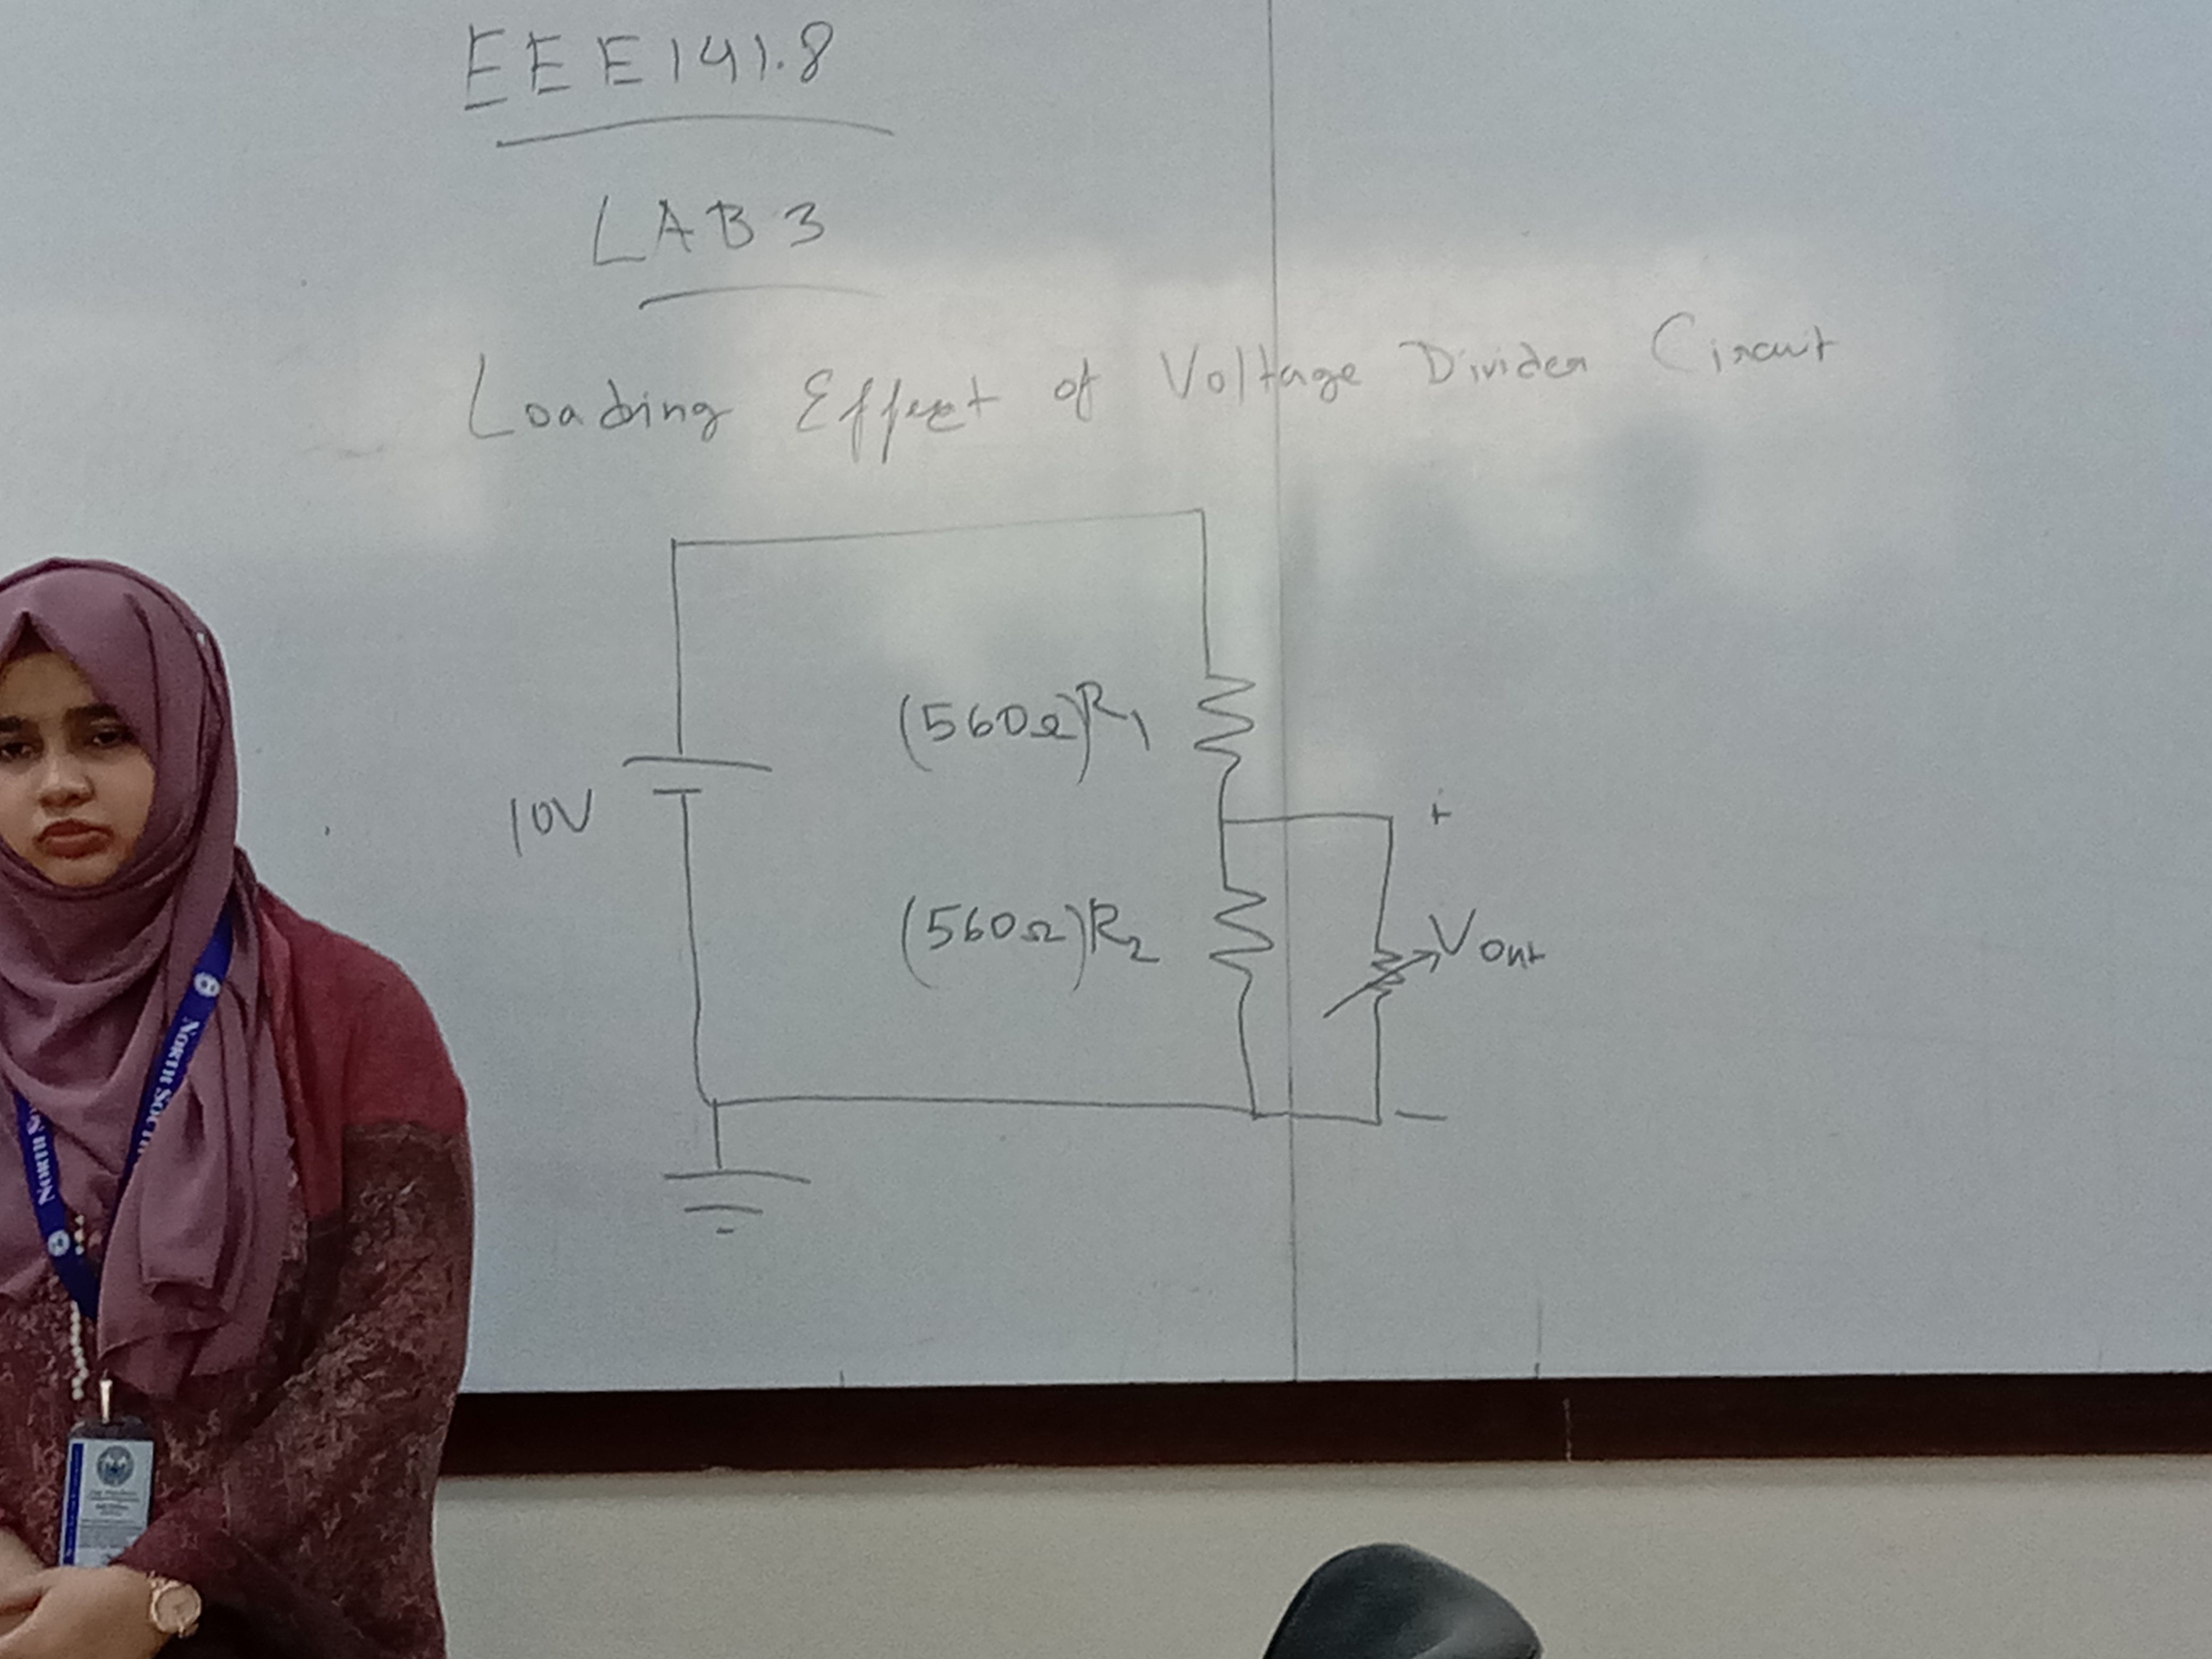 EEE141.8
LAB 3
Loading Effect of Voltage Divider Circuit
(560Ω)R1
10V
+
(560Ω)R2
Vout
—
NORTH SOUTH
NORTH S